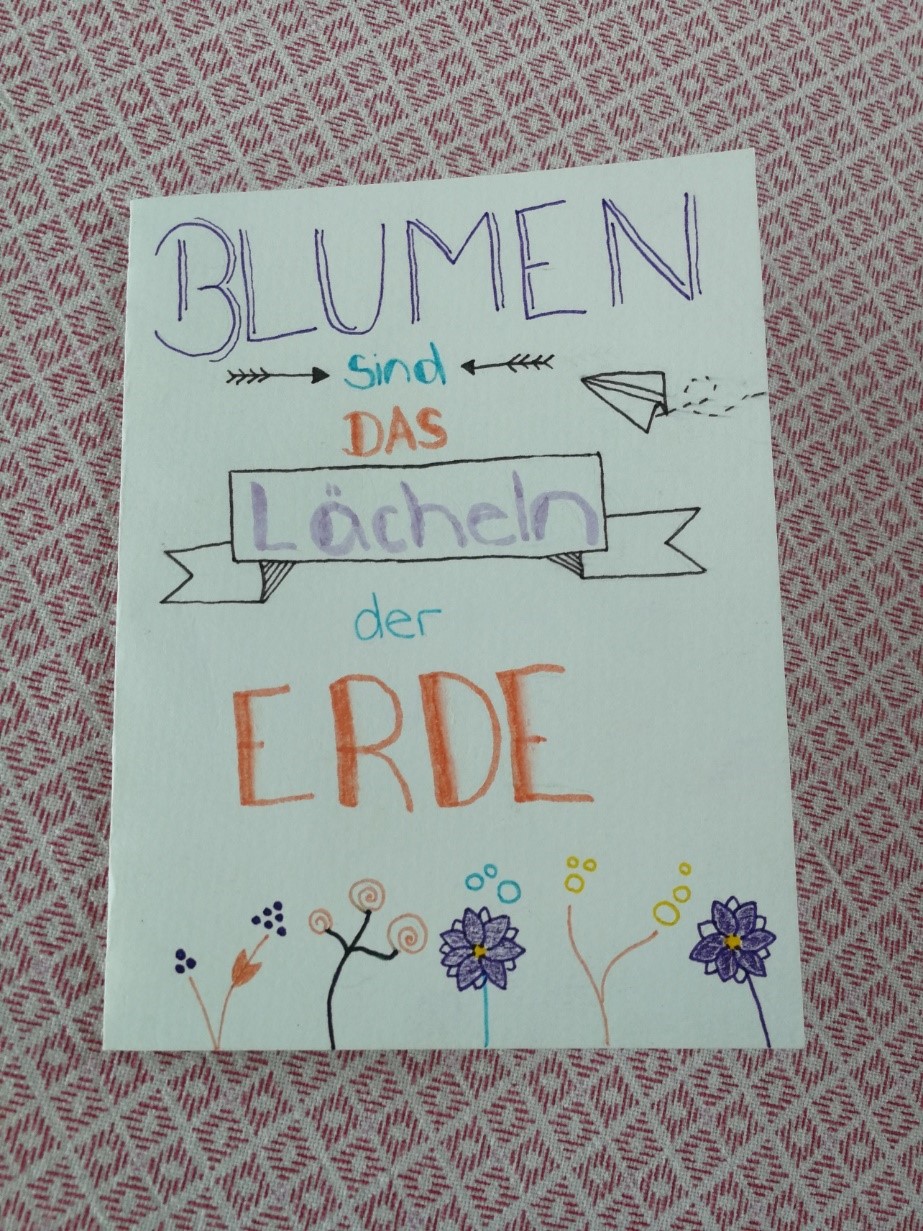 BLUMEN
sind
DAS
Lächeln
der
ERDE